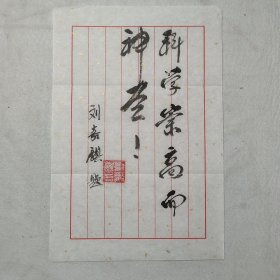 科学崇高而
神圣！
刘嘉麒